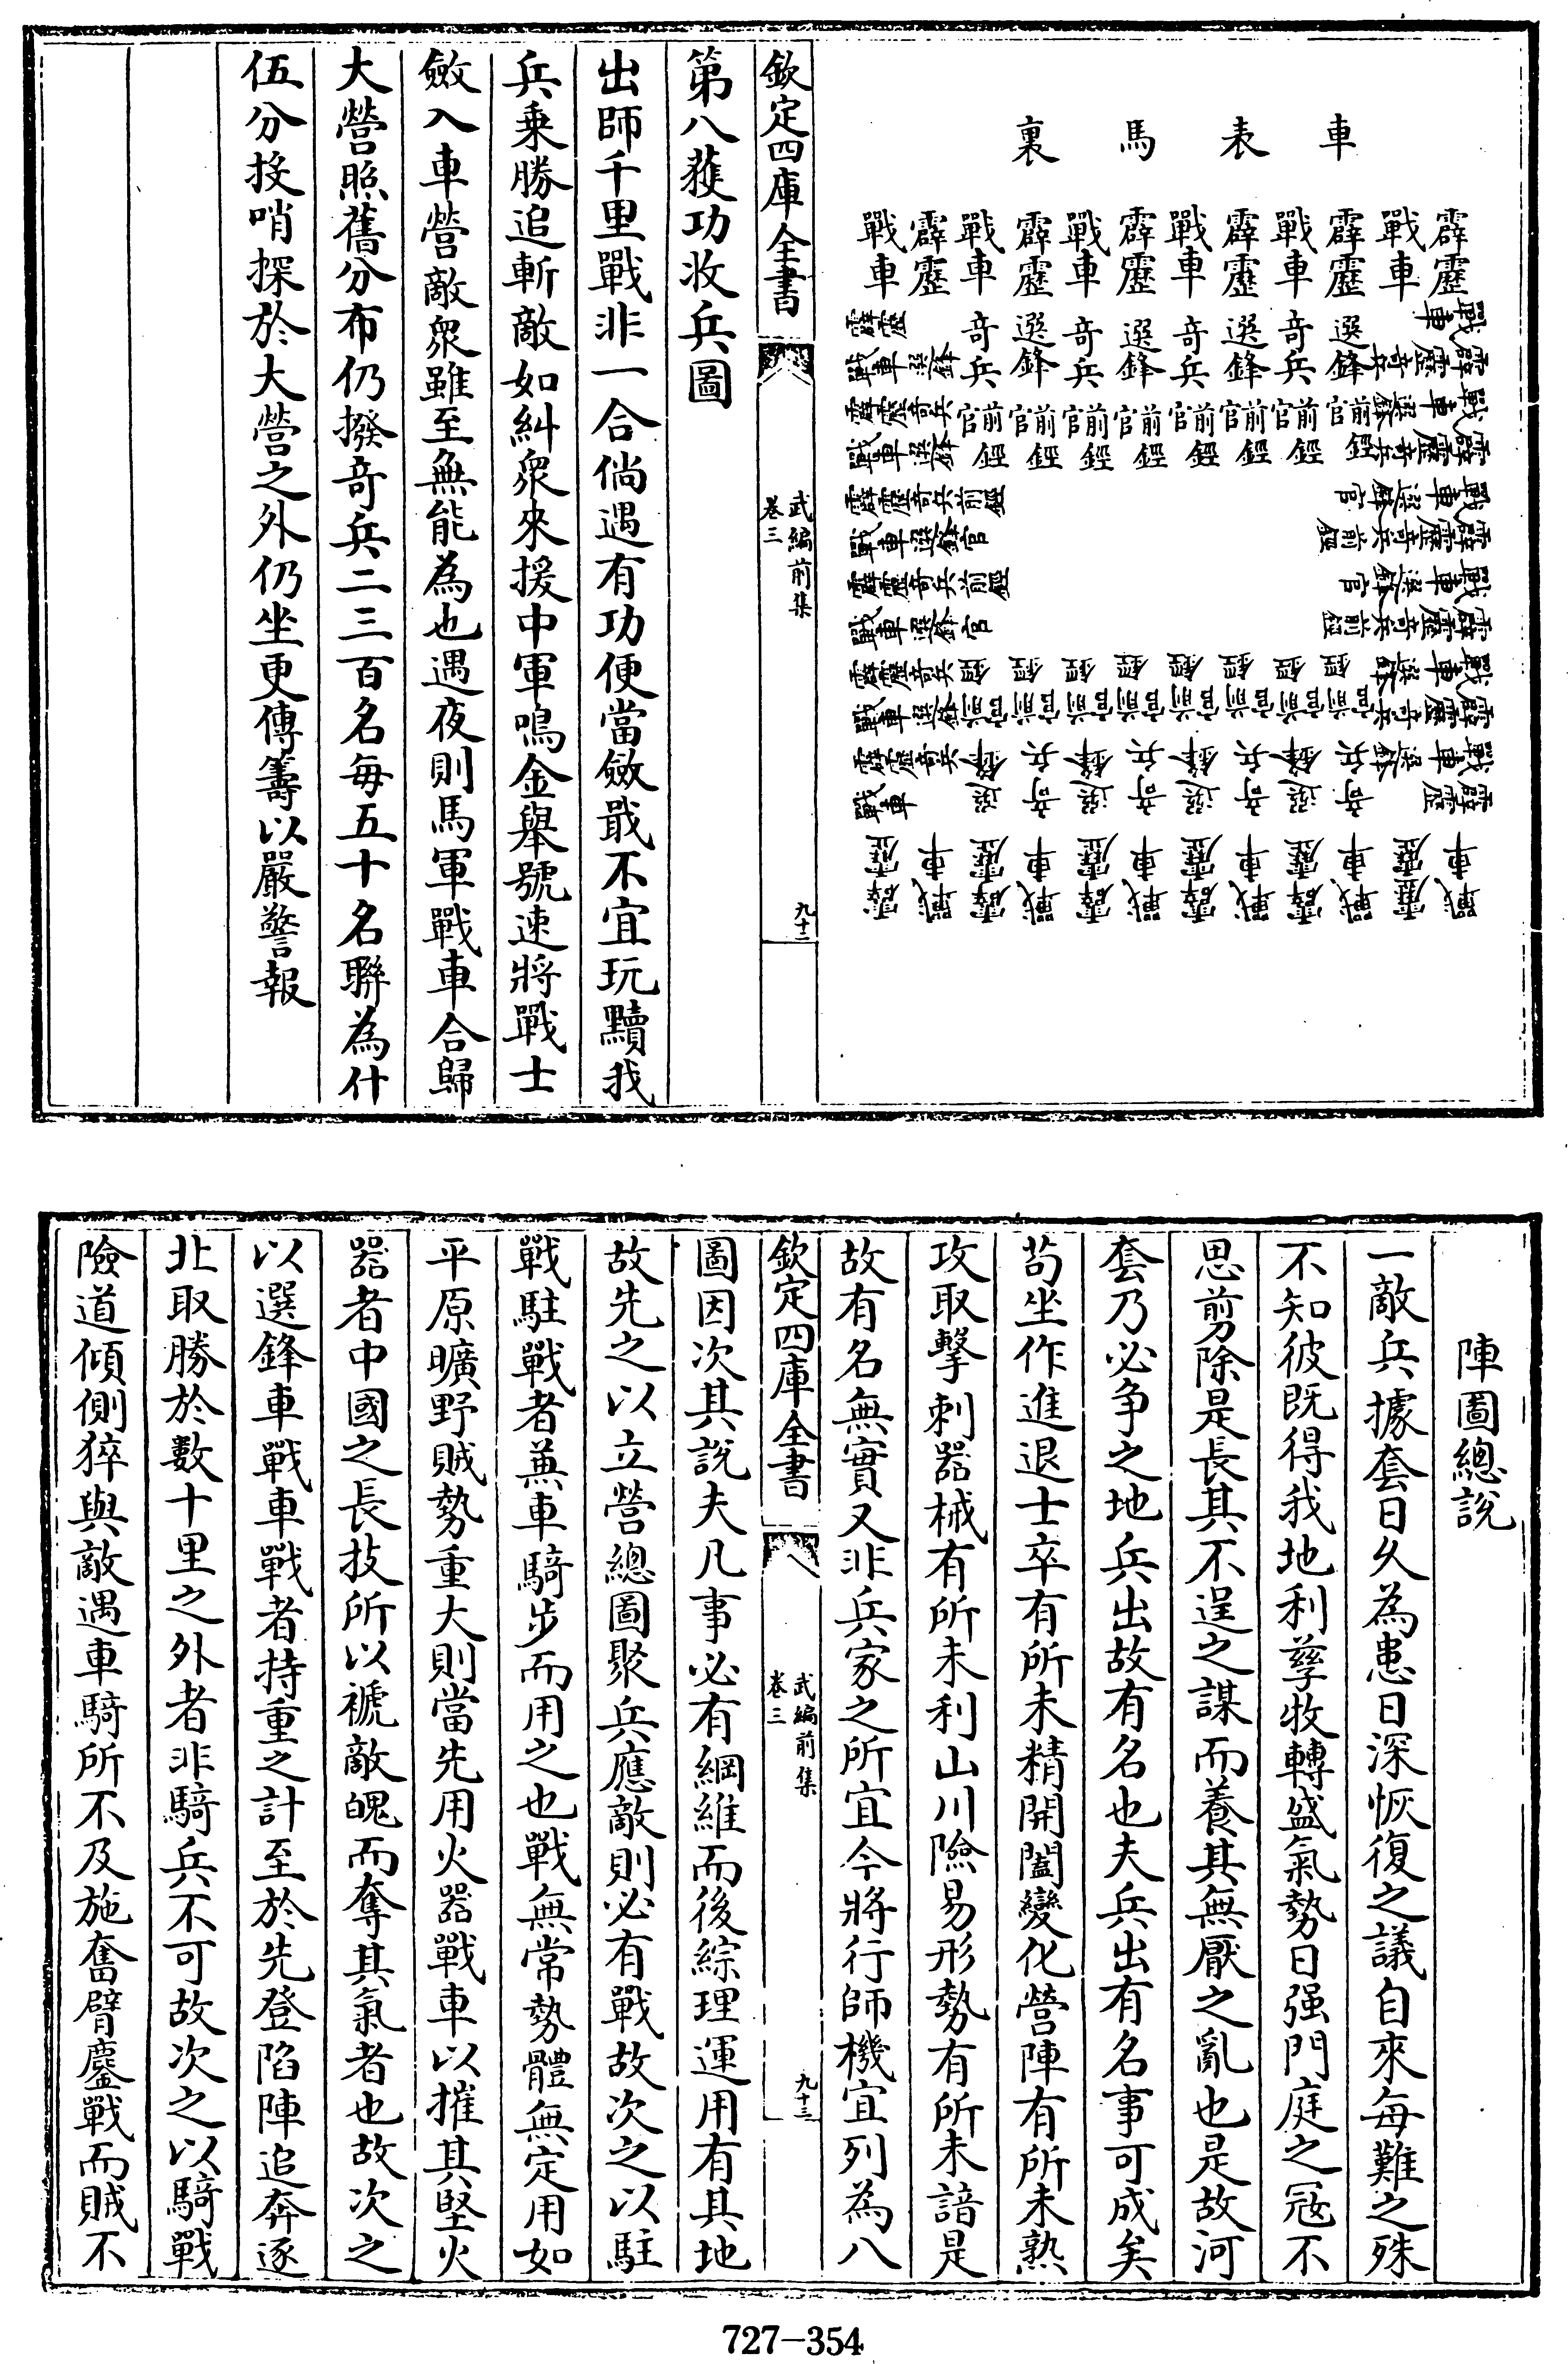 車表馬裏
霹靂戰車霹靂戰車霹靂戰車霹靂戰車霹靂戰車霹靂戰車
選鋒奇兵選鋒奇兵選鋒奇兵選鋒奇兵
欽定四庫全書
武編前集
卷三
九十二
第八獲功收兵圖
出師千里戰非一合倘遇有功便當斂戢不宜玩黷我
兵乗勝追斬敵如糾衆來援中軍鳴金舉號速將戰士
斂入車營敵衆雖至無能為也遇夜則馬軍戰車合歸
大營照舊分布仍撥奇兵二三百名毎五十名聯為什
伍分投哨探於大營之外仍坐更傳籌以嚴警報
陣圖總說
一敵兵據套日久為患日深恢復之議自來毎難之殊
不知彼既得我地利孳牧轉盛氣勢日强門庭之寇不
思剪除是長其不逞之謀而養其無厭之亂也是故河
套乃必争之地兵出故有名也夫兵出有名事可成矣
苟坐作進退士卒有所未精開闔變化營陣有所未熟
攻取擊刺器械有所未利山川險易形勢有所未諳是
故有名無實又非兵家之所宜今將行師機宜列為八
欽定四庫全書
武編前集
卷三
九十三
圖因次其說夫凡事必有綱維而後綜理運用有其地
故先之以立營總圖聚兵應敵則必有戰故次之以駐
戰駐戰者兼車騎步而用之也戰無常勢體無定用如
平原曠野賊勢重大則當先用火器戰車以摧其堅火
器者中國之長技所以褫敵魄而奪其氣者也故次之
以選鋒車戰車戰者持重之計至於先登陷陣追奔逐
北取勝於數十里之外者非騎兵不可故次之以騎戰
險道傾側猝與敵遇車騎所不及施奮臂鏖戰而賊不
727-354